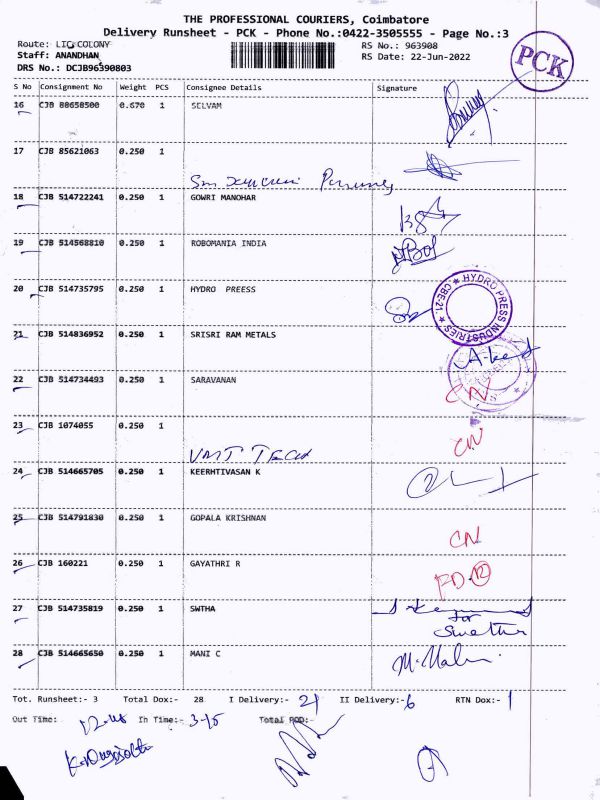 THE PROFESSIONAL COURIERS, Coimbatore
Delivery Runsheet - PCK - Phone No.:0422-3505555 - Page No.:3
Route: LIC COLONY
RS No.: 963908
Staff: ANANDHAN
RS Date: 22-Jun-2022
DRS No.: DCJB96390803
PCK
S No Consignment No Weight PCS Consignee Details Signature
16 CJB 88658500 0.670 1 SELVAM
17 CJB 85621063 0.250 1
18 CJB 514722241 0.250 1 GOWRI MANOHAR
19 CJB 514568810 0.250 1 ROBOMANIA INDIA
20 CJB 514735795 0.250 1 HYDRO PREESS
HYDRO PRESS INDUSTRIES CBE-21.
21 CJB 514836952 0.250 1 SRISRI RAM METALS
22 CJB 514734493 0.250 1 SARAVANAN CN
23 CJB 1074055 0.250 1 CN
VMT TECH
24 CJB 514665705 0.250 1 KEERHTIVASAN K
25 CJB 514791830 0.250 1 GOPALA KRISHNAN CN
26 CJB 160221 0.250 1 GAYATHRI R
27 CJB 514735819 0.250 1 SWTHA
for
Swetha
28 CJB 514665650 0.250 1 MANI C
Tot. Runsheet:- 3 Total Dox:- 28 I Delivery:- 21 II Delivery:- 6 RTN Dox:- 1
Out Time: In Time:- 3-15 Total POD:-